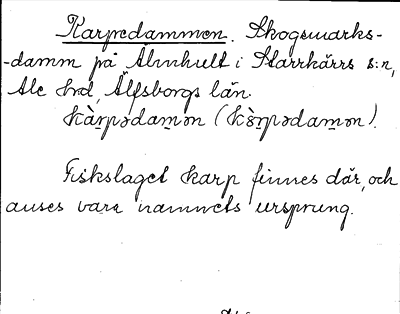 Karpedammen. Skogsmarks-
-damm på Älmhult i Starrkärrs s:n,
Ale hrd, Älfsborgs län.
kàr̲pədam̲ən (kòr̲pədam̲ən).
Fiskslaget karp finnes där, och
anses vara namnets ursprung.